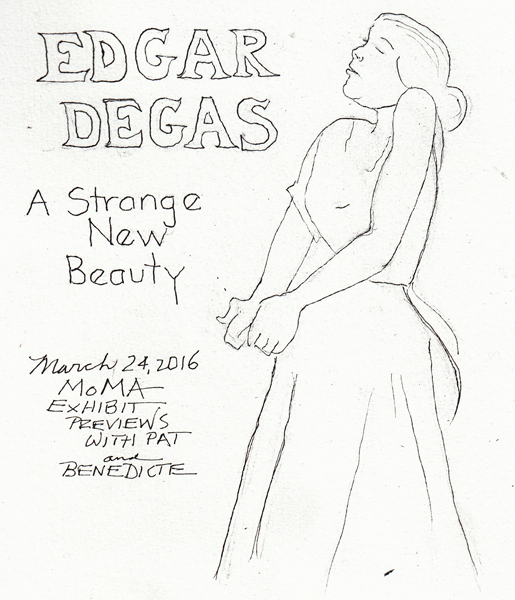 EDGAR
DEGAS
A Strange
New
Beauty
March 24, 2016
MoMA
EXHIBIT
PREVIEWS
WITH PAT
and
BENEDICTE